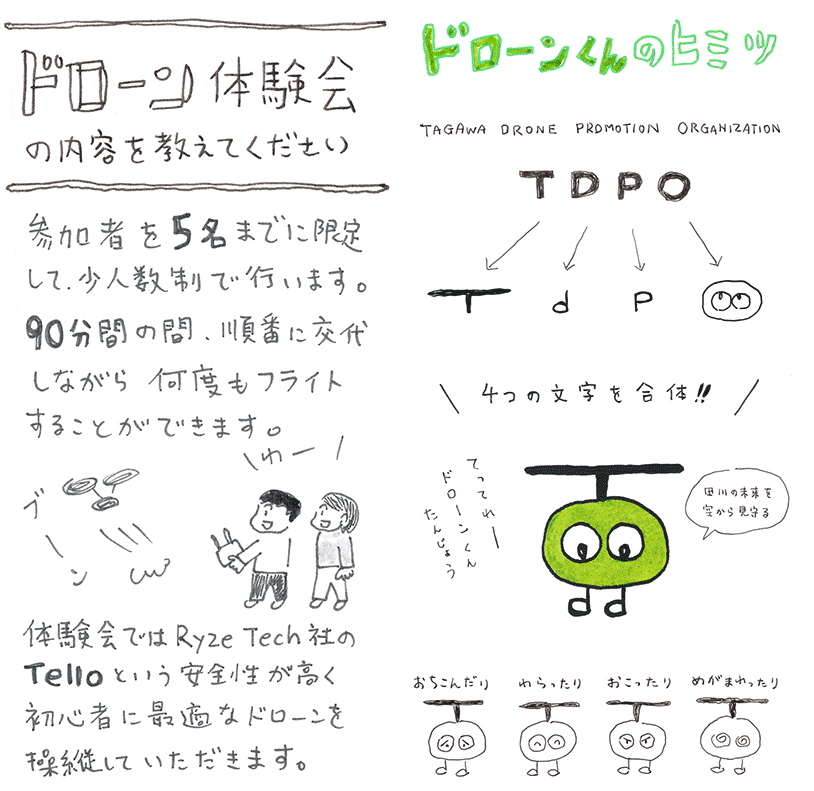 ドローン体験会
の内容を教えてください
参加者を5名までに限定
して、少人数制で行います。
90分間の間、順番に交代
しながら 何度もフライト
することができます。
わー
ブーン
体験会ではRyze Tech社の
Telloという安全性が高く
初心者に最適なドローンを
操縦していただきます。
ドローンくんのヒミツ
TAGAWA DRONE PROMOTION ORGANIZATION
TDPO
T d P
4つの文字を合体!!
てってれー
ドローンくん
たんじょう
田川の未来を
空から見守る
おちこんだり わらったり おこったり めがまわったり